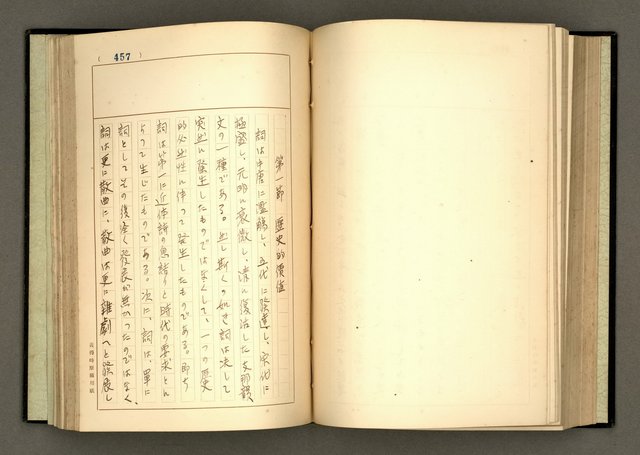 ( 457 )
第一節 歴史的價値
詞は中唐に濫觴し、五代に發達し、宋代に
極盛し、元明に衰微し、清に復活した支那韻
文の一種である。然し斯くの如き詞は決して
突然に發生したものではなくして、一つの歴史
的必然性に伴つて發生したものである。即ち
詞は第一に近体詩の息詰りと時代の要求とに
よつて生じたものである。次に、詞は、單に
詞としてその後全く發展が無かつたのではなく、
詞は更に散曲に、散曲は更に雜劇へと發展し